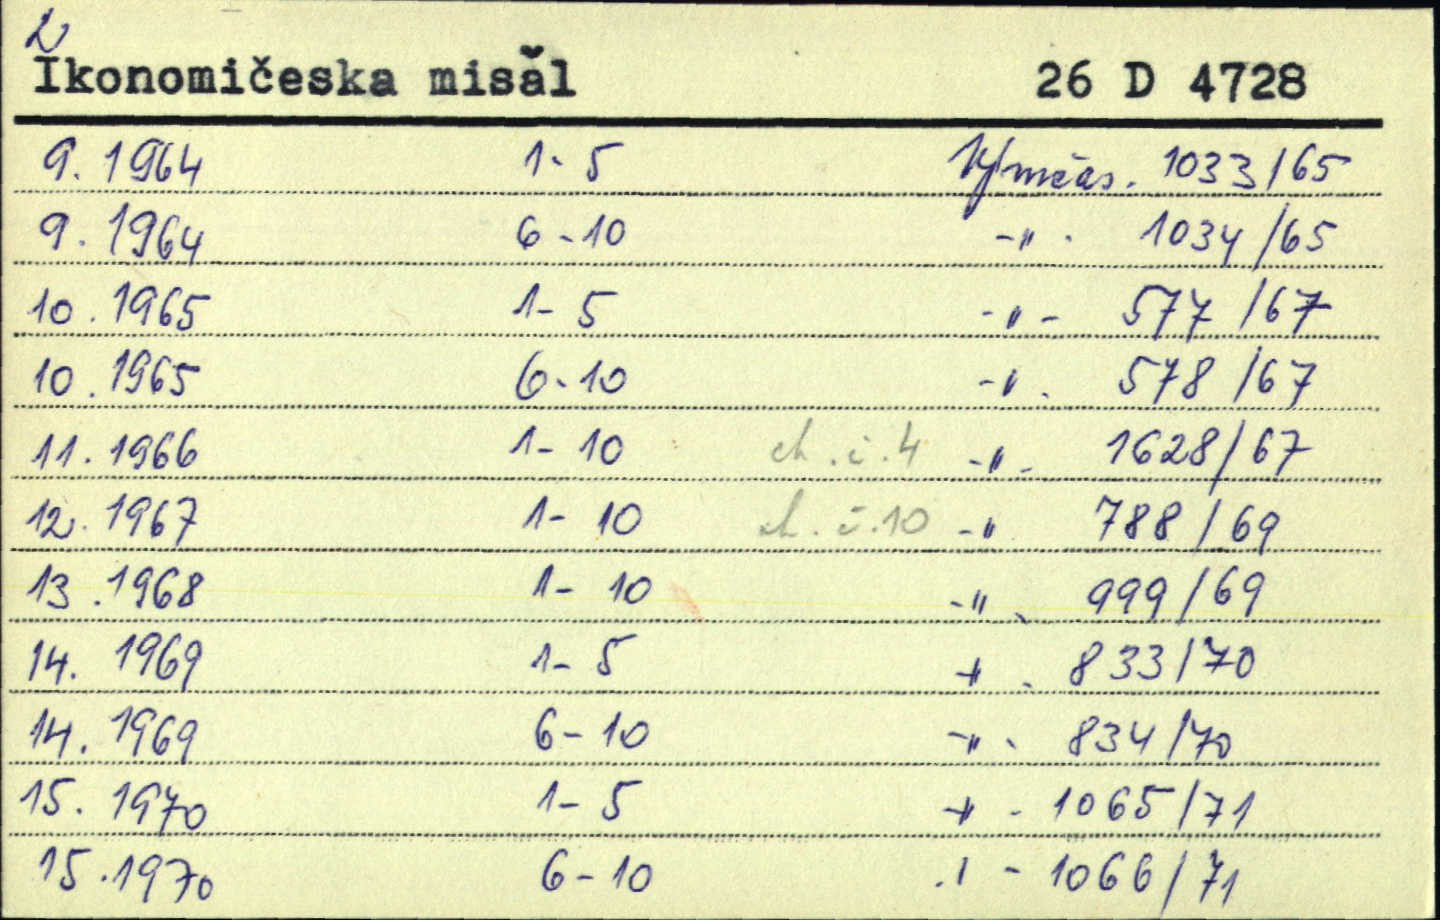 2
Ikonomičeska misăl 26 D 4728
9. 1964 1-5 Vým. čas. 1033/65
9. 1964 6-10 -"- 1034/65
10. 1965 1-5 -"- 577/67
10. 1965 6-10 -"- 578/67
11. 1966 1-10 ch. č. 4 -"- 1628/67
12. 1967 1-10 ch. č. 10 -" 788/69
13. 1968 1-10 -"- 999/69
14. 1969 1-5 -"- 833/70
14. 1969 6-10 -"- 834/70
15. 1970 1-5 -"- 1065/71
15. 1970 6-10 -"- 1066/71